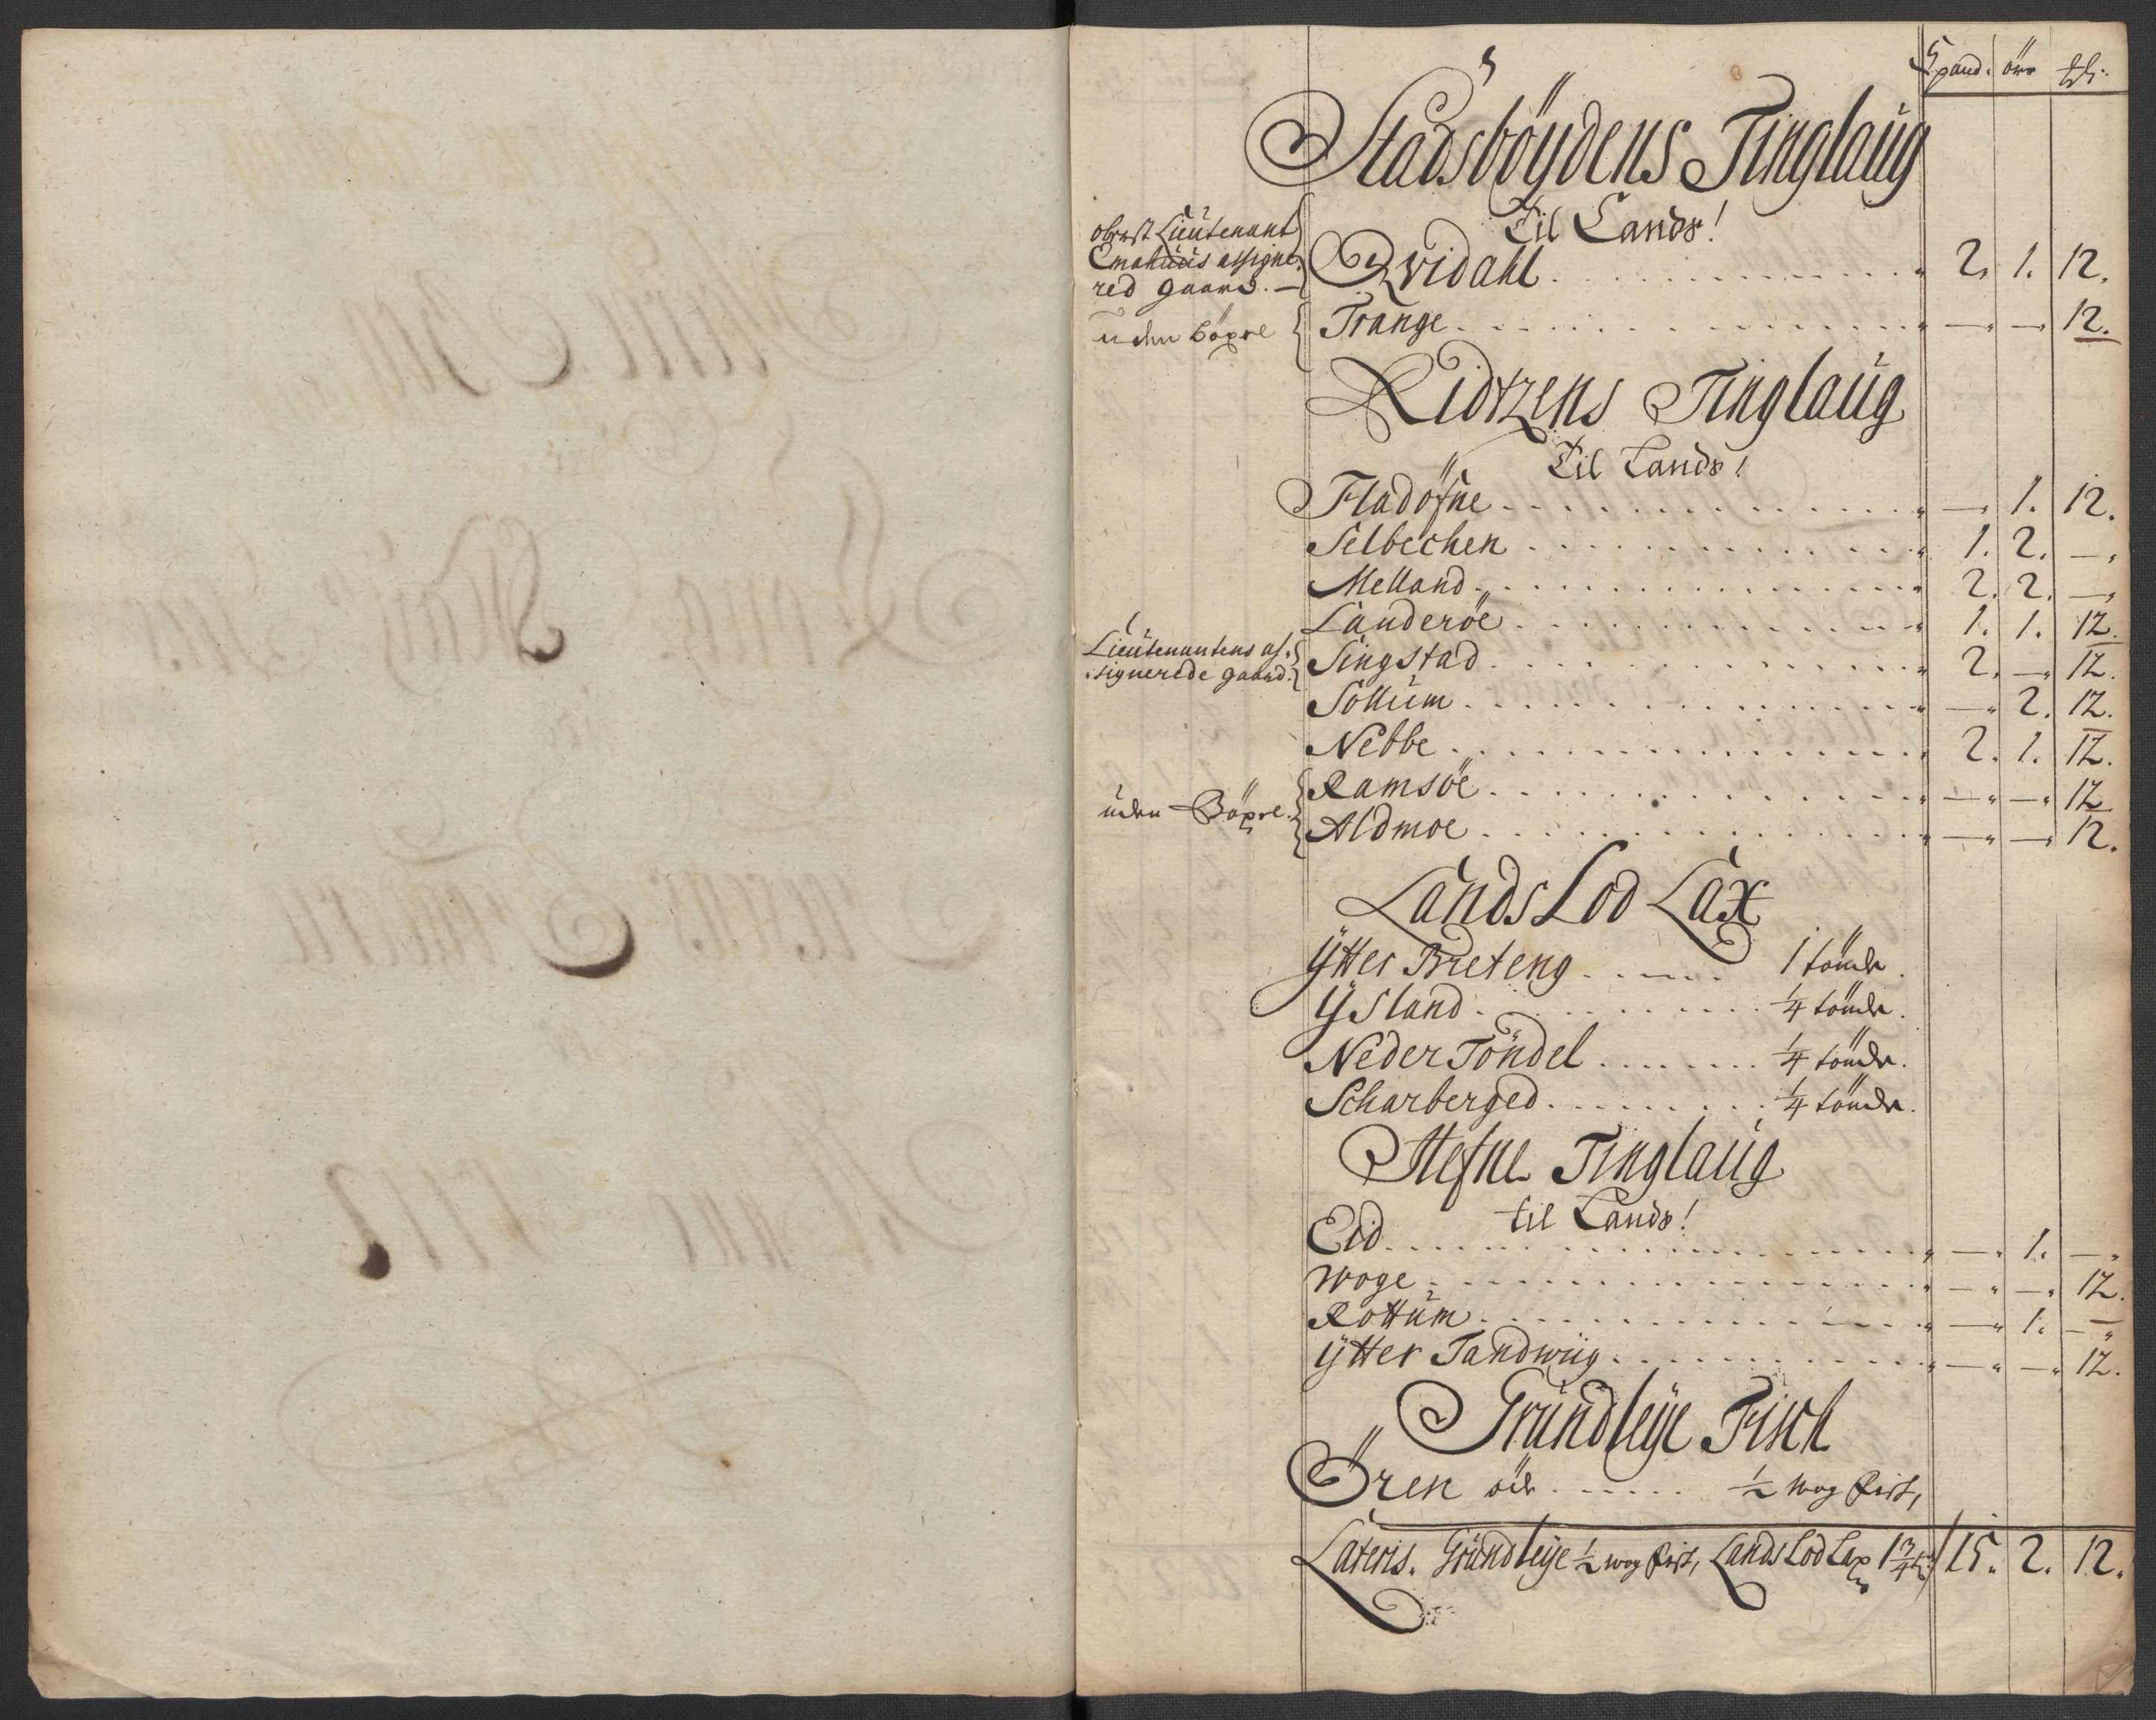 Spand. öre
Stadsböydens Tinglaug
Til Lands!
oberst Lieutenant
assigne,
red gaard. —
Qvidahl . . . . 2. 1. 12.
uden böxel
Trange . . . . — — 12.
Ridtzens Tinglaug
Til Lands!
Fladöfne . . . . — 1. 12.
Selbechen . . . . 1. 2. —
Melland . . . . 2. 2. —
Landeröe . . . . 1. 1. 12.
Lieutenantens as,
signerede gaard.
Singstad . . . . 2. — 12.
Sollum . . . . — 2. 12.
Nebbe . . . . 2. 1. 12.
Ramsöe . . . . — — 12.
uden Böxel.
Aldmoe . . . . — — 12.
Lands Lod Lax
Ytter Breteng . . . . 1 tönde.
Ysland . . . . 1/4 tönde.
Neder Töndel . . . . 1/4 tönde.
Scharberged . . . . 1/4 tönde.
Hefne Tinglaug
til Lands!
Eid . . . . — 1. —
Woge . . . . — — 12.
Rottum . . . . — 1. —
Ytter Tandwiig . . . . — — 12.
Grundleye Fisch
Ören . . . . 1/2 wog fisk,
Lateris. Grundleye 1/2 wog fisk, Lands Lod Lax 1 3/4 t 15. 2. 12.